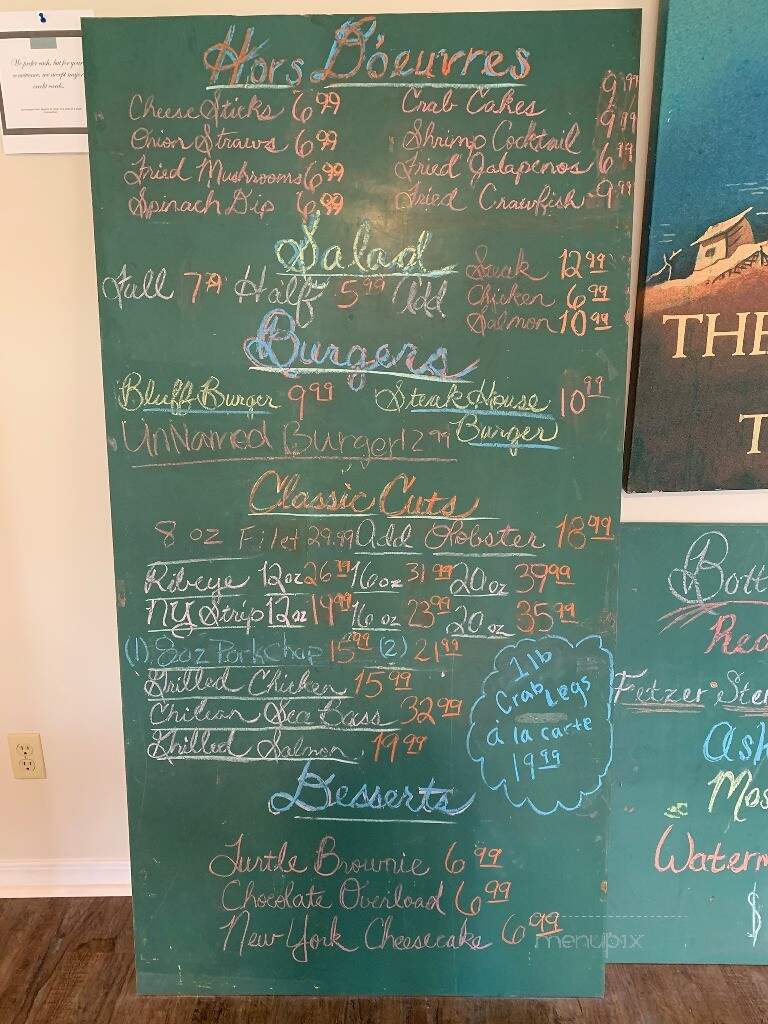 We prefer cash, but for your
convenience, we accept major
credit cards.
Hors D'oeuvres
Cheese Sticks 6.99 Crab Cakes 9.99
Onion Straws 6.99 Shrimp Cocktail 9.99
Fried Mushrooms 6.99 Fried Jalapenos 6.99
Spinach Dip 6.99 Fried Crawfish 9.99
Salad
Full 7.99 Half 5.99 Add Steak 12.99
Chicken 6.99
Salmon 10.99
Burgers
Bluff Burger 9.99 SteakHouse Burger 10.99
UnNamed Burger 12.99
Classic Cuts
8 oz Filet 29.99 add Lobster 18.99
Ribeye 12oz 26.99 16oz 31.99 20oz 39.99
NY Strip 12oz 19.99 16oz 23.99 20oz 35.99
(1) 8oz Pork Chop 15.99 (2) 21.99
Grilled Chicken 15.99
Chilean Sea Bass 32.99
Grilled Salmon 19.99
1 lb
Crab Legs
á la carte
19.99
Desserts
Turtle Brownie 6.99
Chocolate Overload 6.99
New York Cheesecake 6.99
menupix
THE
T
Bott
Red
Fetzer Ste
Ash
Mos
Waterm
$